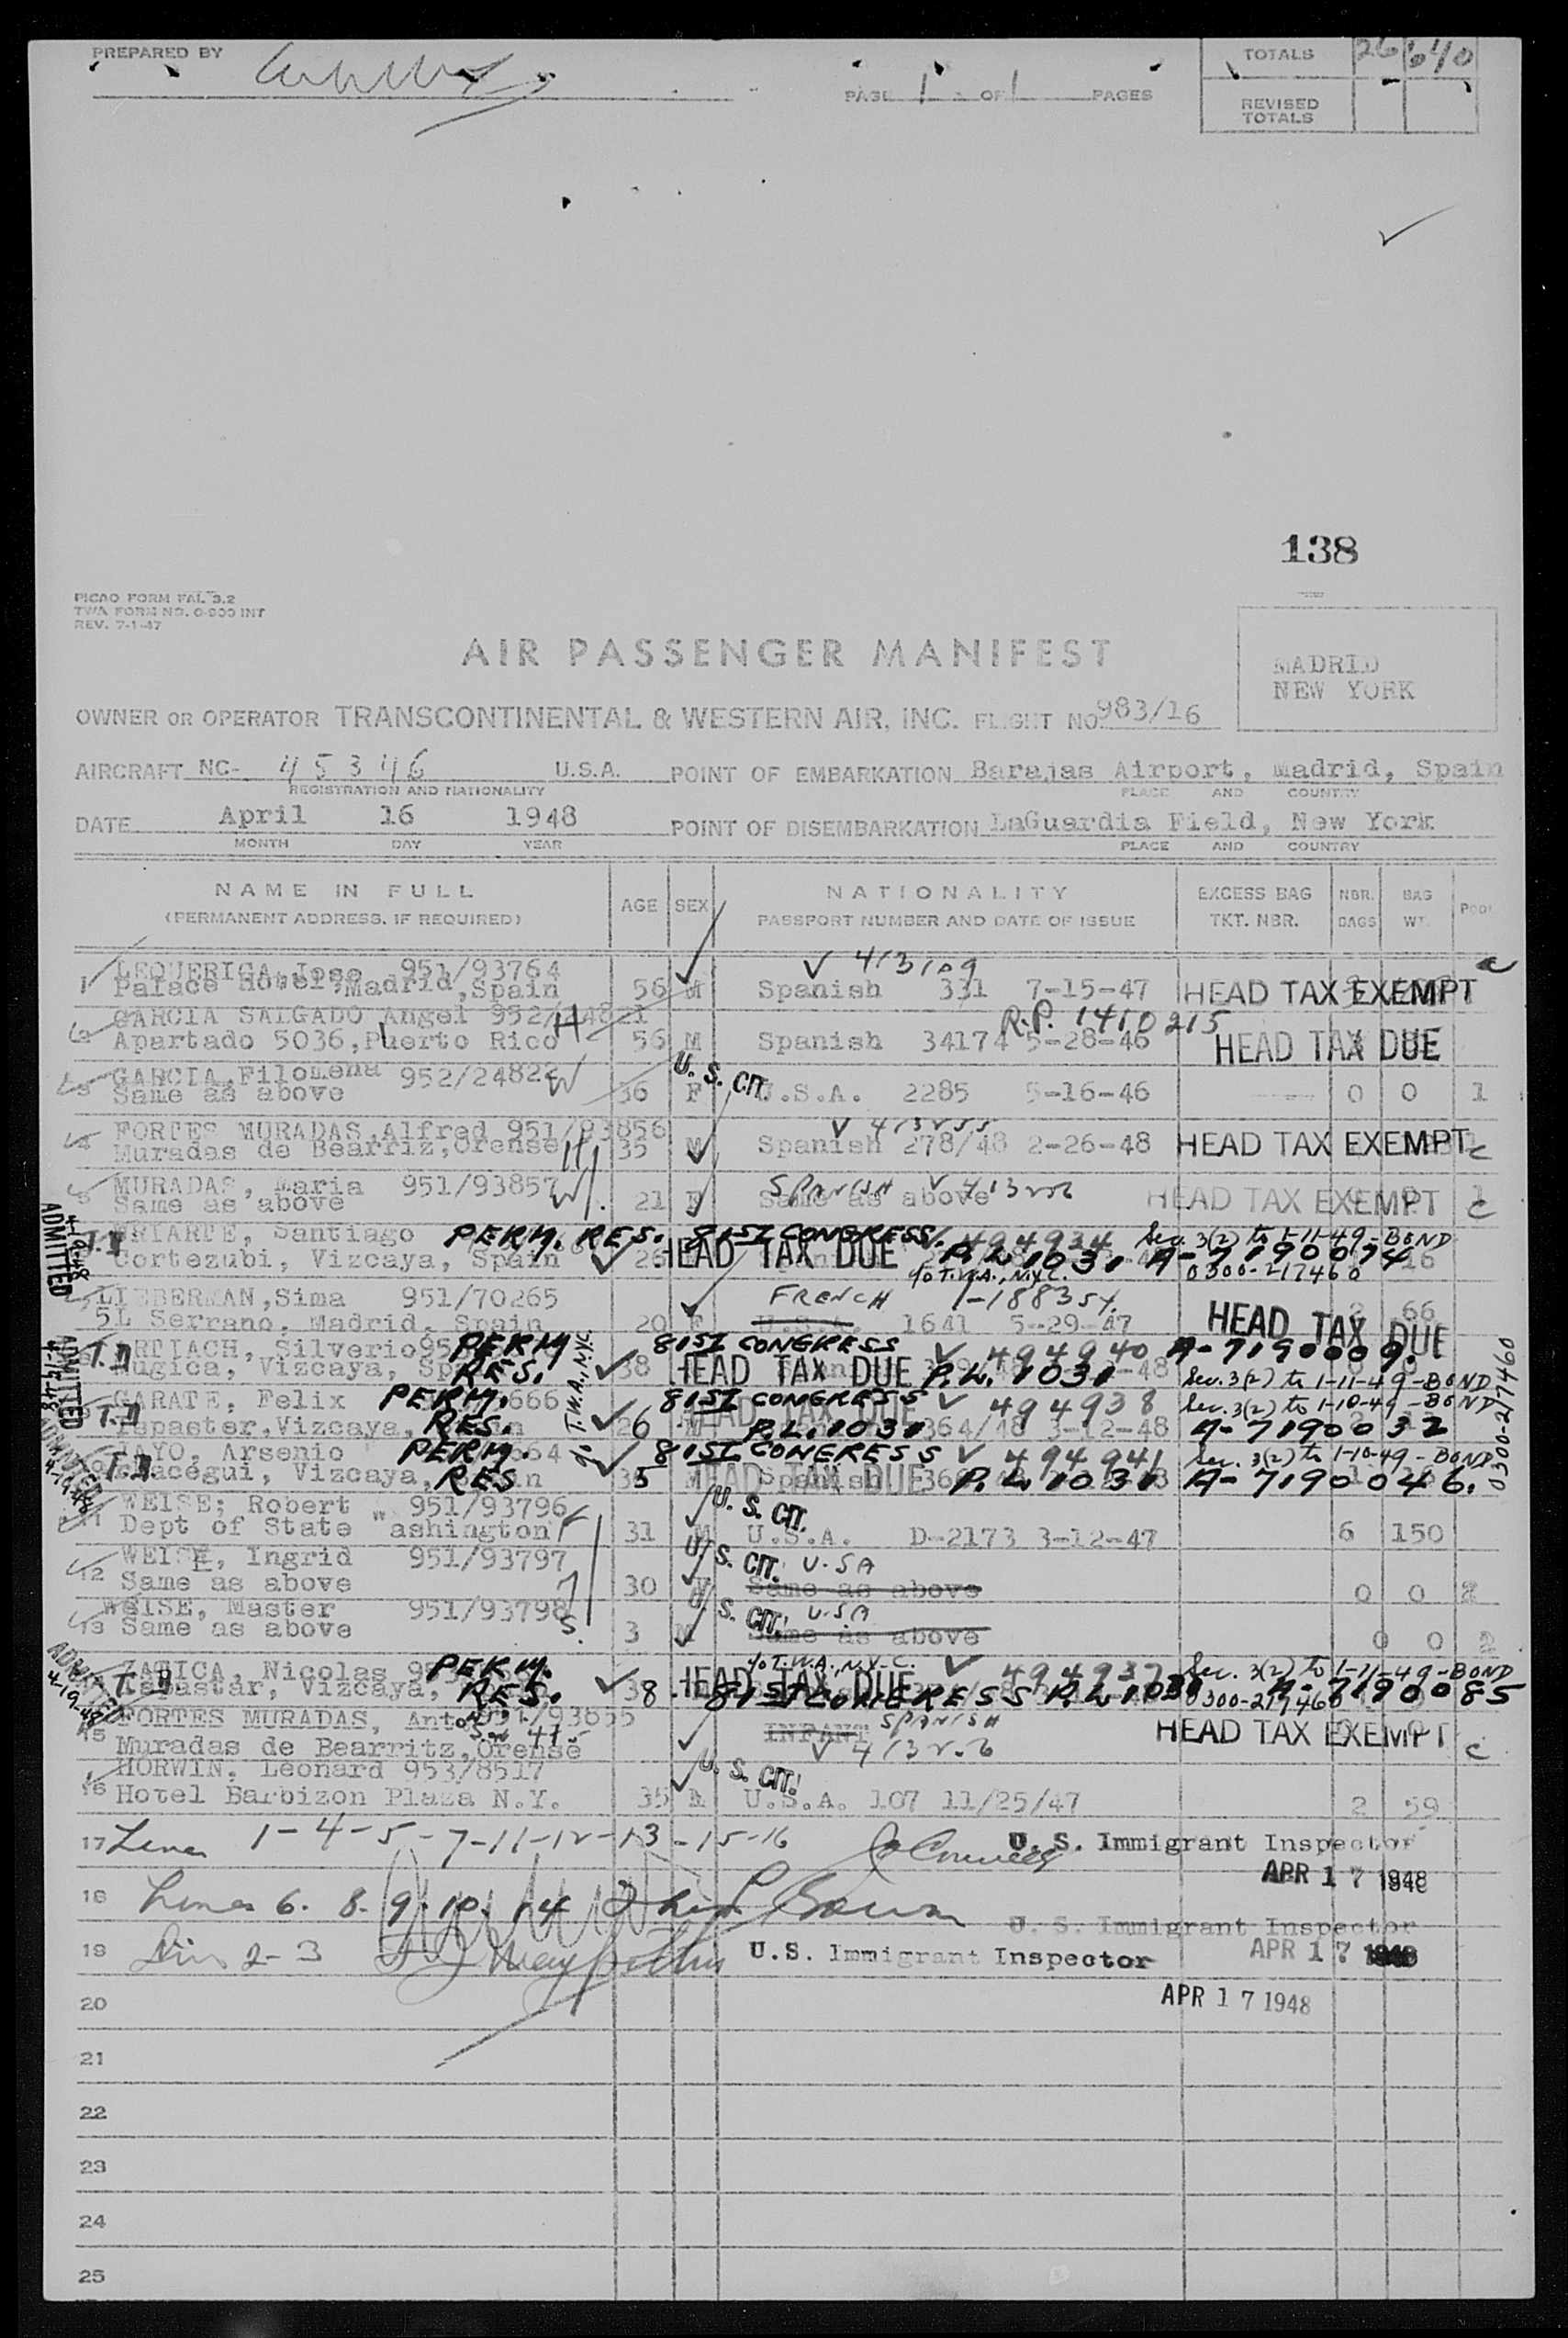 PREPARED BY
PAGE 1 OF 1 PAGES
TOTALS 26 640
REVISED TOTALS
138
PICAO FORM FAL 3.2
TWA FORM NO. 0-900 INT
REV. 7-1-47
AIR PASSENGER MANIFEST
MADRID
NEW YORK
OWNER OR OPERATOR TRANSCONTINENTAL & WESTERN AIR, INC. FLIGHT NO 983/16
AIRCRAFT NC- 45346 U.S.A. POINT OF EMBARKATION Barajas Airport, Madrid, Spain
REGISTRATION AND NATIONALITY PLACE AND COUNTRY
DATE April 16 1948 POINT OF DISEMBARKATION LaGuardia Field, New York
MONTH DAY YEAR PLACE AND COUNTRY
NAME IN FULL AGE SEX NATIONALITY EXCESS BAG NBR. BAG
(PERMANENT ADDRESS, IF REQUIRED) PASSPORT NUMBER AND DATE OF ISSUE TKT. NBR. BAGS WT.
LEQUERICA, Jose 951/93764 ✓ 413109
1 Palace Hotel, Madrid, Spain 56 M Spanish 331 7-15-47 HEAD TAX EXEMPT c
GARCIA SALGADO Angel 952/24821 R.P. 1410215
2 Apartado 5036, Puerto Rico H 56 M Spanish 34174 5-28-46 HEAD TAX DUE
GARCIA, Filomena 952/24822 W U. S. CIT.
3 Same as above 36 F U.S.A. 2285 5-16-46 0 0 1
FORTES MURADAS, Alfred 951/93856 ✓ 413255
4 Muradas de Bearriz, Orense H 35 M Spanish 278/48 2-26-48 HEAD TAX EXEMPT c
MURADAS, Maria 951/93857 W SPANISH ✓ 413256
5 Same as above 21 F Same as above HEAD TAX EXEMPT 1 c
ADMITTED 4-19-48
T.D URIARTE, Santiago PERM. RES. 81ST CONGRESS ✓ 494934 Sec. 3(2) to 1-11-49-BOND
Cortezubi, Vizcaya, Spain ✓ 26 HEAD TAX DUE P.L. 1031 A-7190074 16
c/o T.W.A., N.Y.C. 0300-217460
LIEBERMAN, Sima 951/70265 FRENCH 1-188354
5L Serrano, Madrid, Spain 20 F U.S.A. 1641 5-29-47 HEAD TAX DUE 2 66
ADMITTED 4-19-48
T.D ARTIACH, Silverio PERM. 81ST CONGRESS ✓ 494940 A-7190009.
Mugica, Vizcaya, RES. ✓ 38 HEAD TAX DUE P.L. 1031 Sec. 3(2) to 1-11-49-BOND
c/o T.W.A., N.Y.C.
0300-217460
GARATE, Felix PERM. 666 81ST CONGRESS ✓ 494938 Sec. 3(2) to 1-10-49-BOND
T.D Ispaster, Vizcaya, RES. ✓ 26 HEAD TAX DUE P.L. 1031 364/48 3-12-48 A-7190032
MAYO, Arsenio PERM. 81ST CONGRESS ✓ 494941 Sec. 3(2) to 1-10-49-BOND
T.D Vizcaya, RES ✓ 35 M HEAD TAX DUE Spanish P.L. 1031 A-7190046.
WEISE; Robert W 951/93796 U. S. CIT.
11 Dept of State Washington 31 M U.S.A. D-2173 3-12-47 6 150
WEISE, Ingrid 951/93797 U. S. CIT. U.SA
12 Same as above 30 Same as above 0 0 2
WEISE, Master 951/93798 U. S. CIT. U.SA
13 Same as above S. 3 M Same as above 0 0 2
ADMITTED 4-19-48
T.D ZATICA, Nicolas PERM. c/o T.W.A., N.Y.C. ✓ 494937 Sec. 3(2) to 1-11-49-BOND
Ispastar, Vizcaya, RES. ✓ 38 HEAD TAX DUE 81ST CONGRESS P.L. 1031 0300-217460 A-7190085
FORTES MURADAS, SPANISH
15 Muradas de Bearritz, Orense INFANT HEAD TAX EXEMPT c
HORWIN, Leonard 953/8517 U. S. CIT.
16 Hotel Barbizon Plaza N.Y. 35 M U.S.A. 107 11/25/47 2 59
17 Lines 1-4-5-7-11-12-13-15-16 U. S. Immigrant Inspector
APR 17 1948
18 Lines 6. 8. 9. 10. 14
U. S. Immigrant Inspector
19 2-3 U.S. Immigrant Inspector APR 17 1948
20 APR 17 1948
21
22
23
24
25